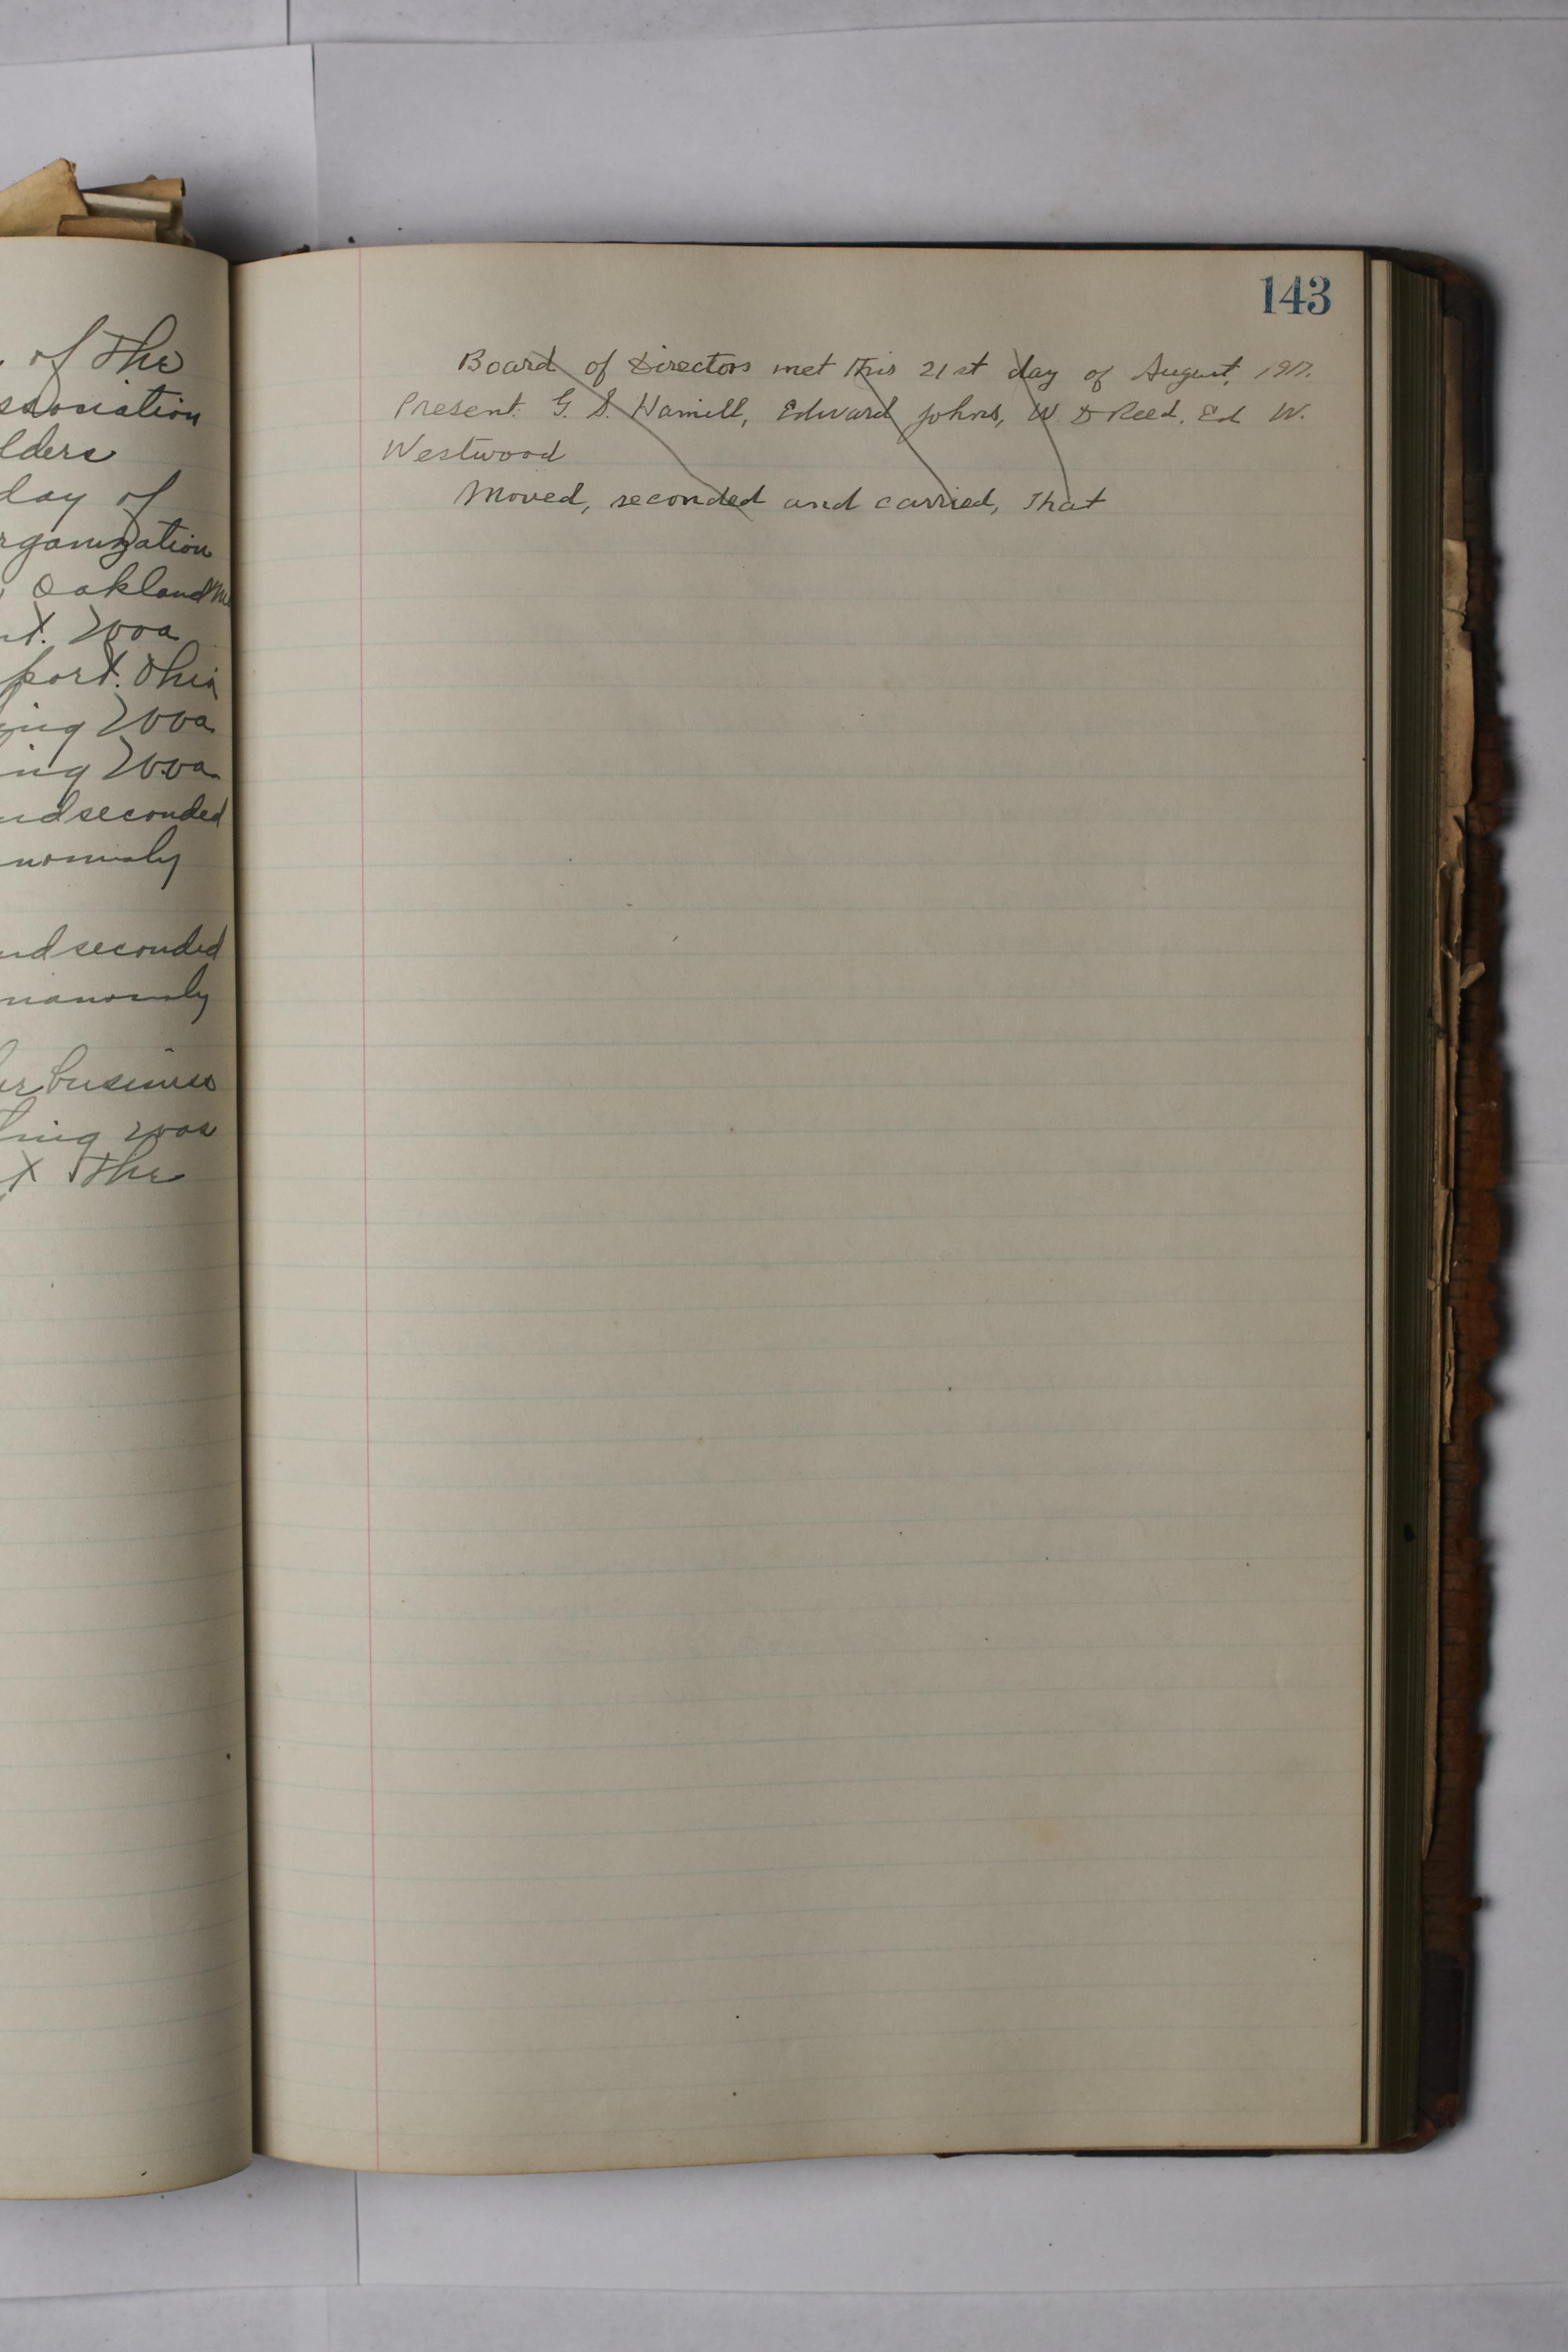 of the
ssociation
lders
day of
rganization
Oakland Md
nt. was
port. Ohio
ing was
ing was
nd seconded
nd seconded
er business
ting was
t the
143
Board of Directors met this 21st day of August, 1917.
Present: G. S. Hamill, Edward Johns, W. D Reed, Ed W.
Westwood
Moved, seconded and carried, that